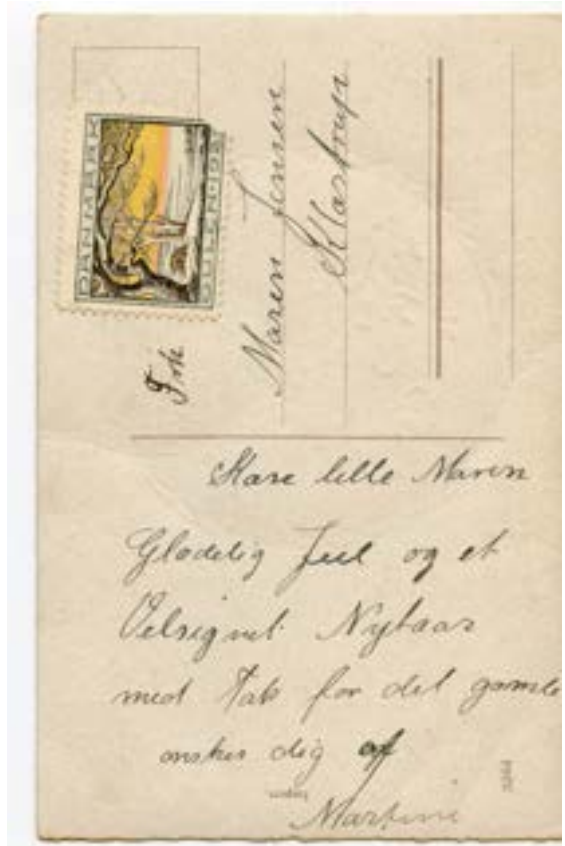 DANMARK
JULEN
Frk
Maren Jensen
Klastrup
Kære lille Maren
Glædelig Juel og et
Velsignet Nytaar
med Tak for det gamle
ønskes dig af
Martine